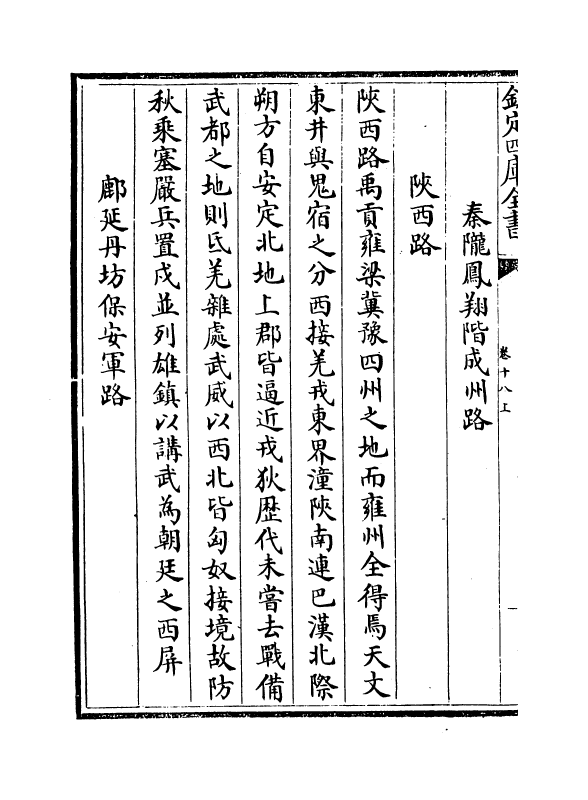 欽定四庫全書
卷十八上
秦隴鳳翔階成州路
陜西路
陜西路禹貢雍梁冀豫四州之地而雍州全得焉天文
東井與鬼宿之分西接羌戎東界潼陜南連巴漢北際
朔方自安定北地上郡皆逼近戎狄歴代未嘗去戰備
武都之地則氐羌雜處武威以西北皆匈奴接境故防
秋乘塞嚴兵置戍並列雄鎮以講武為朝廷之西屏
鄜延丹坊保安軍路